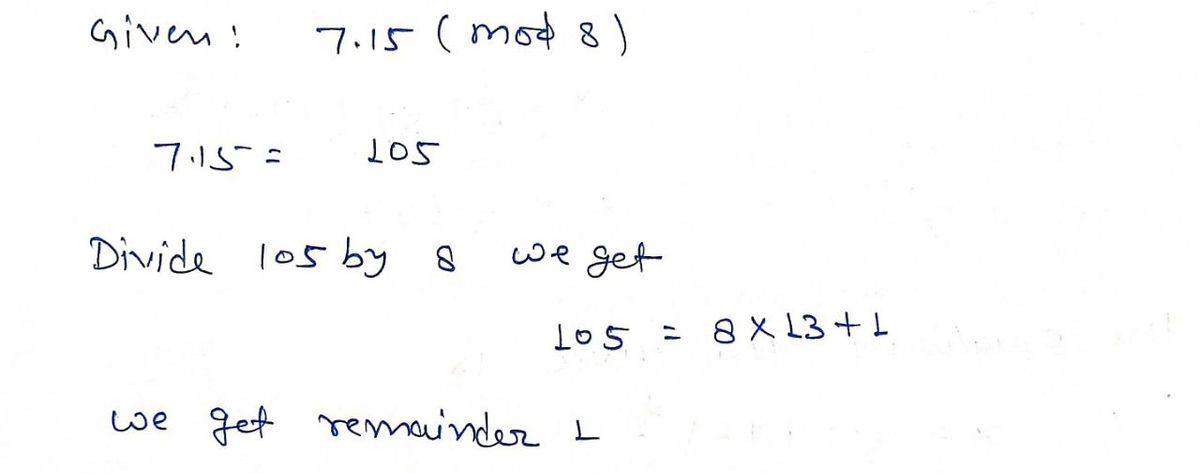 Given: 7.15 (mod 8)
7.15 = 105
Divide 105 by 8 we get
105 = 8 × 13 + 1
we get remainder 1